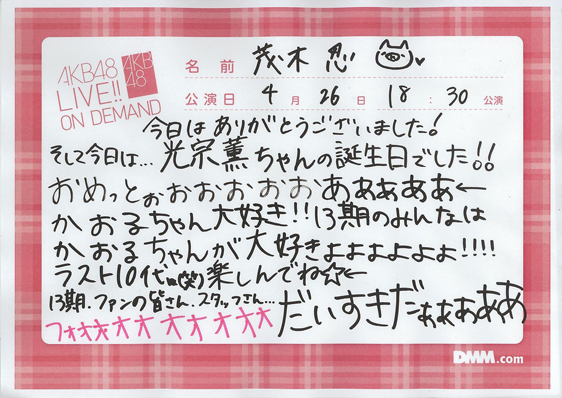 AKB48
LIVE!!
ON DEMAND
AKB
48
名前 茂木 忍
公演日 4月26日 18:30公演
今日はありがとうございました!
そして今日は…光宗薫ちゃんの誕生日でした!!
おめっとぉぉぉぉぉぉぉあぁぁぁぁぁ←
かおるちゃん大好き!!13期のみんなは
かおるちゃんが大好きよょょょょょょ!!!!
ラスト10代…(笑)楽しんでね☆←
13期、ファンの皆さん、スタッフさん…だいすきだぁぁぁぁああ
フォオオオオオオオオオ
DMM.com